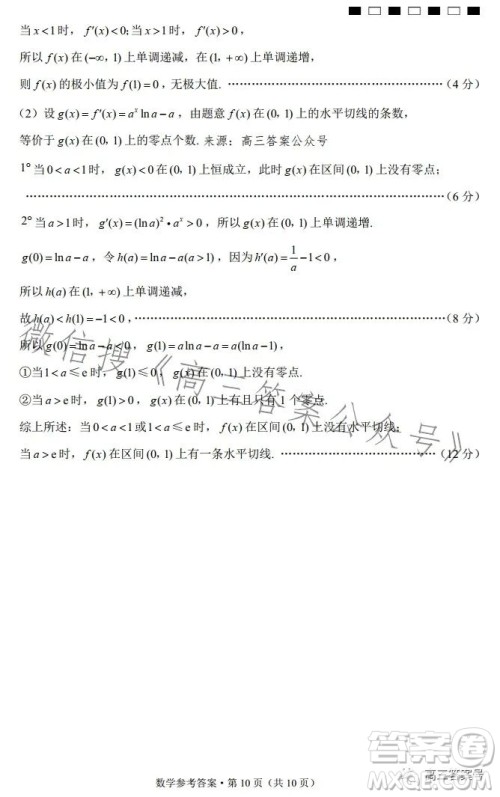 当 x<1 时，f′(x)<0；当 x>1 时，f′(x)>0，
所以 f(x) 在 (−∞, 1) 上单调递减，在 (1, +∞) 上单调递增，
则 f(x) 的极小值为 f(1)=0，无极大值. ……………………（4 分）
（2）设 g(x)=f′(x)=aˣ ln a−a，由题意 f(x) 在 (0, 1) 上的水平切线的条数，
等价于 g(x) 在 (0, 1) 上的零点个数. 来源：高三答案公众号
1° 当 0<a<1 时，g(x)<0 在 (0, 1) 上恒成立，此时 g(x) 在区间 (0, 1) 上没有零点；
……………………（6 分）
2° 当 a>1 时，g′(x)=(ln a)²•aˣ>0，所以 g(x) 单调递增.
g(0)=ln a−a，令 h(a)=ln a−a(a>1)，因为 h′(a)=1/a−1<0，
所以 h(a) 在 (1, +∞) 上单调递减，
故 h(a)<h(1)=−1<0，……………………（8 分）
所以 g(0)=ln a−a<0，g(1)=a ln a−a=a(ln a−1)，
①当 1<a≤e 时，g(1)≤0，g(x) 在 (0, 1) 上没有零点.
②当 a>e 时，g(1)>0，g(x) 在 (0, 1) 上有且只有 1 个零点.
综上所述：当 0<a<1 或 1<a≤e 时，f(x) 在区间 (0, 1) 上没有水平切线；
当 a>e 时，f(x) 在区间 (0, 1) 上有一条水平切线. ……………………（12 分）
微信搜《高三答案公众号》
数学参考答案·第 10 页（共 10 页）
高三答案号
答案圈